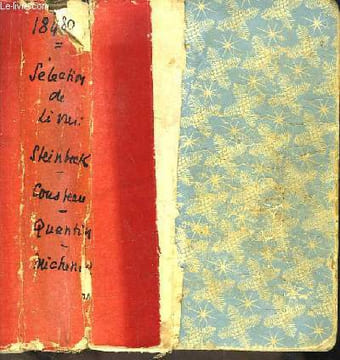 Le-livre.com
18480
=
Sélection
de
Livres
Steinbeck
-
Cousteau
-
Quentin
-
Michener